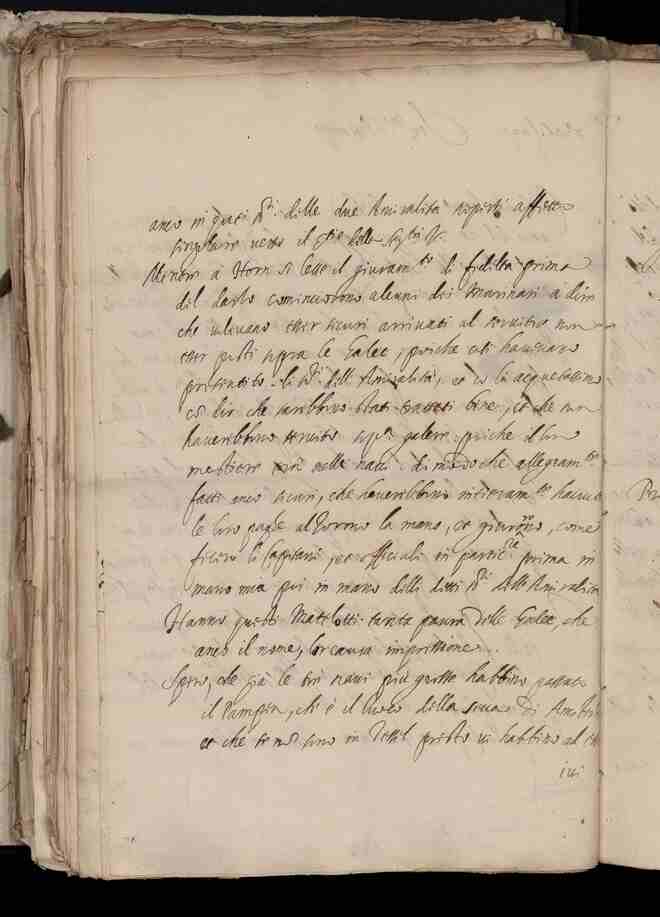 anco in questi SS.ri delle due Amiralità rispetti affetto
singolare verso il
Mentre à Horn si lesse il giuram.to di fideltà prima
del darlo cominciorono alcuni dei Marinari à dire
che volevano esser sicuri arrivati al servitio non
esser posti sopra le Galee, poiche essi havevano
li SS.ri dell'Amiralità, et io li acquetassimo
co'l dir che sarebbero stati trattati bene, et che non
haverebbero servito sop.a galere poiche il loro
mestiero era nelle navi. di modo che allegram.te
fatti anco sicuri, che haverebbero intieram.te havute
le loro paghe alzorono la mano, et giurorono, come
fecero li Capitanii, et officiali in partic.re prima in
mano mia poi in mano delli detti SS.ri dell'Amiralità
Hanno questi Matelotti tanta paura delle Galee, che
anco il nome, lor causa impressione.
Spero, che già le tre navi più grosse habbino passato
il Pampus, ch'è il luoco della secca di
et che se non sono in Texel presto vi habbino ad
ivi